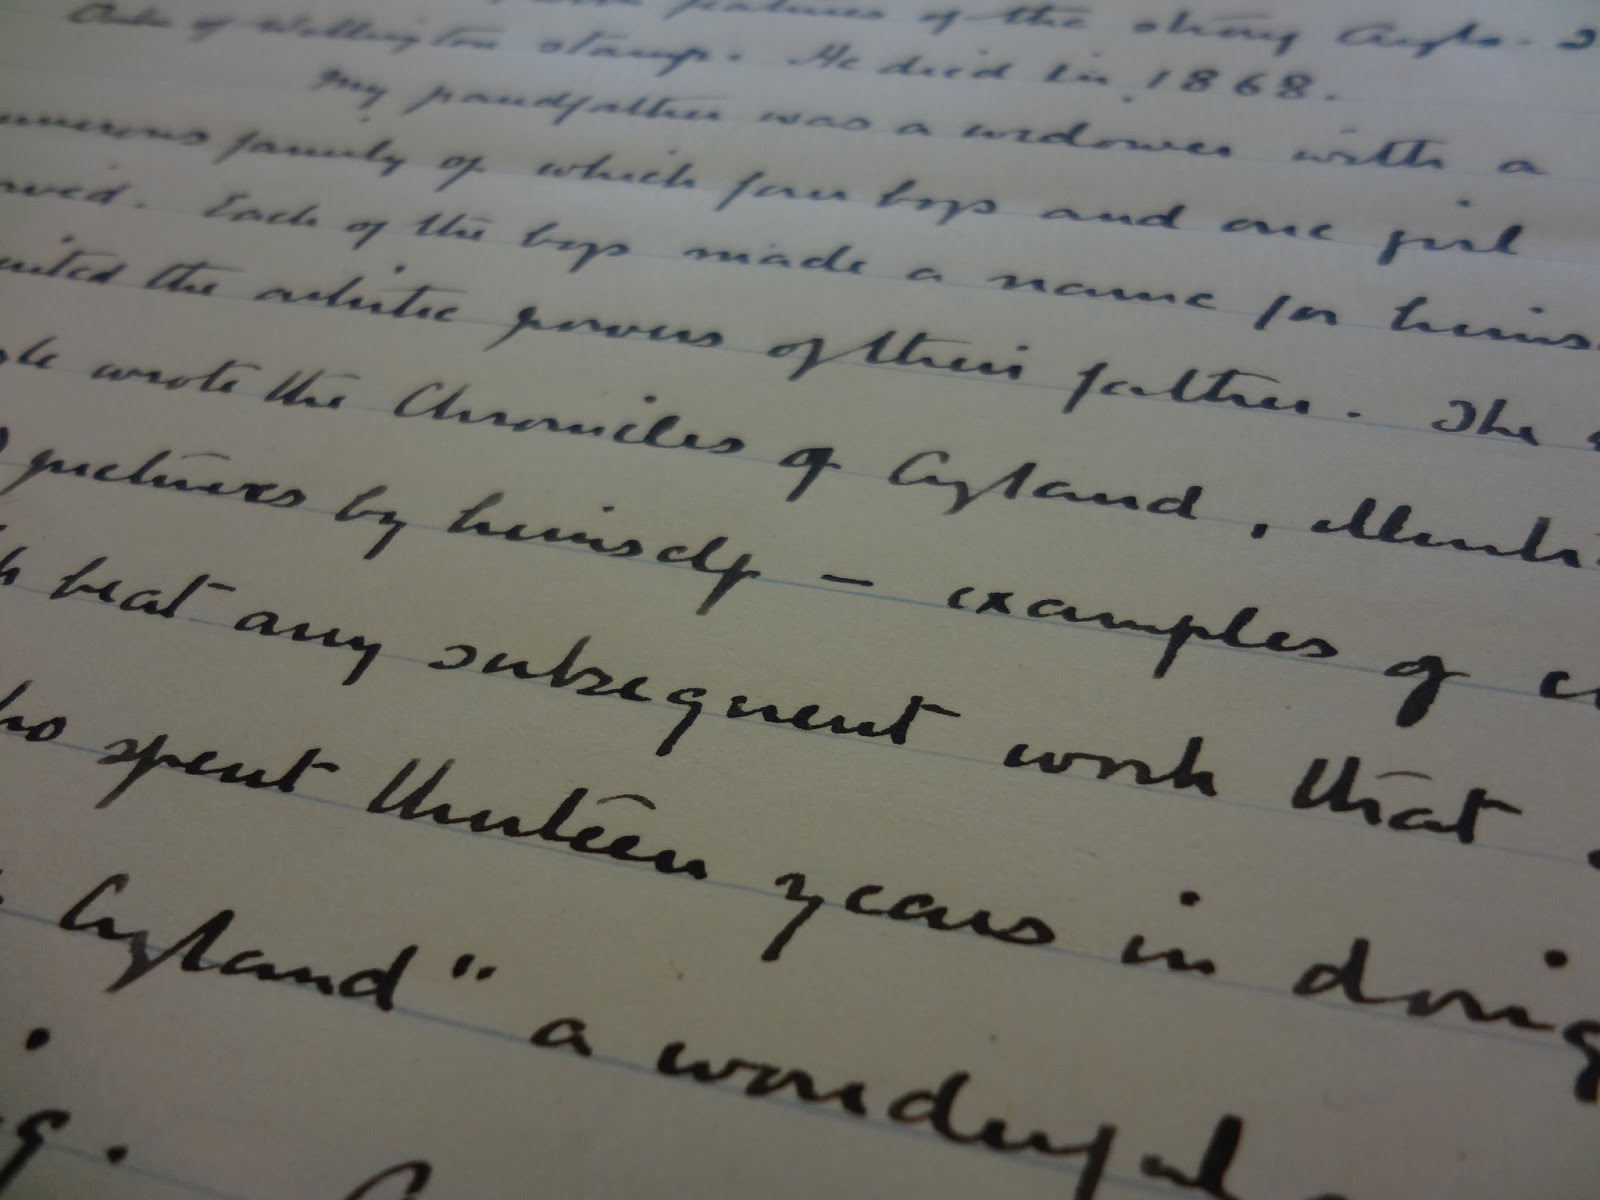 features of the strong Anglo-S
Duke of Wellington stamp. He died in 1868.
My grandfather was a widower with a
numerous family of which four boys and one girl
rived. Each of the boys made a name for hims
erited the artistic powers of their father. The
yle wrote the Chronicles of England, illustr
pictures by himself - examples of c
h beat any subsequent work that
ho spent thirteen years in doing
England" a wonderful
g.